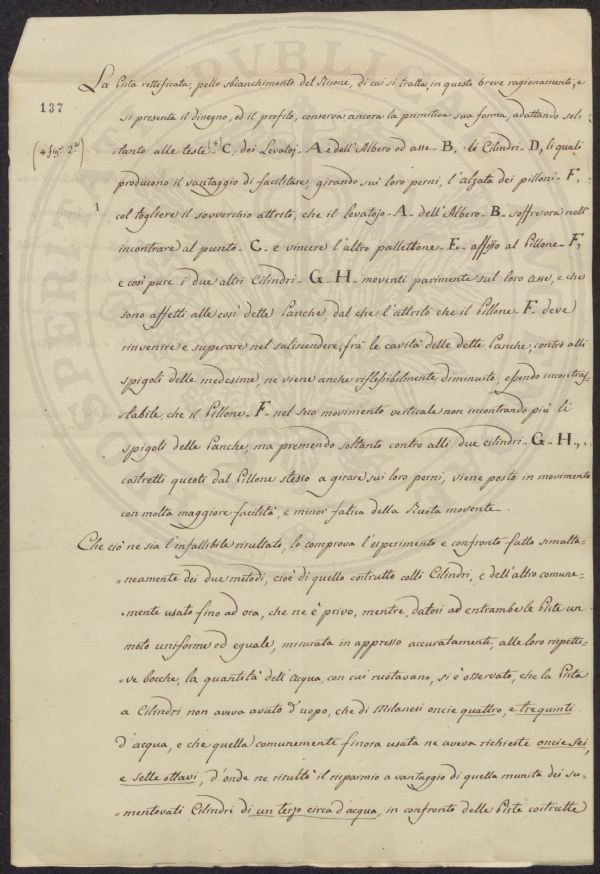 La Pista rettificata, pello sbianchimento del Risone, di cui si tratta, in questo breve ragionamento, e
137
si presenta il disegno, ed il profilo, conserva ancora la primitiva sua forma, adattando sol-
(* fig.ª 2.ª)
tanto alle teste (*) C. dei Levatoj- A- e dell'Albero od asse- B, li Cilindri- D, li quali
producono il vantaggio di facilitare, girando sui loro perni, l'alzata dei pilloni- F,
1
col togliere il sovverchio attrito, che il levatojo- A- dell'Albero- B- soffre ora nell'
incontrare al punto- C- e vincere l'altro pallettone- E- affisso al Pillone- F,
e così pure i due altri Cilindri- G- H- moventi parimente sul loro asse, e che
sono affetti alle così dette Panche, dal che l'attrito che il Pillone- F- deve
rinvenire e superare nel saliscendere, frà le cavità delle dette Panche, contro alli
spigoli delle medesime, ne viene anche riflessibilmente diminuito, essendo incontras-
-tabile, che il Pillone- F- nel suo movimento verticale non incontrando più li
spigoli delle Panche, ma premendo soltanto contro alli due cilindri- G- H-,
costretti questi dal Pillone stesso a girare sui loro perni, viene posto in movimento
con molta maggiore facilità, e minor fatica della Ruota movente.
Che ciò ne sia l'infallibile risultato, lo comprova l'esperimento e confronto fatto simulta-
=neamente dei due metodi, cioè di quello costrutto colli Cilindri, e dell'altro comune-
=mente usato fino ad ora, che ne è privo, mentre, datosi ad entrambe le Piste un
moto uniforme ed eguale, misurata in appresso accuratamente, alle loro rispetti-
=ve bocche, la quantità dell'acqua, con cui ruotavano, si è osservato, che la Pista
a Cilindri non aveva avuto d'uopo, che di Milanesi oncie quattro, e tre quinti
d'acqua, e che quella comunemente finora usata ne aveva richieste oncie sei,
e sette ottavi, d'onde ne risultò il risparmio a vantaggio di quella munita dei su-
=mentovati Cilindri di un terzo circa d'acqua, in confronto delle Piste costrutte